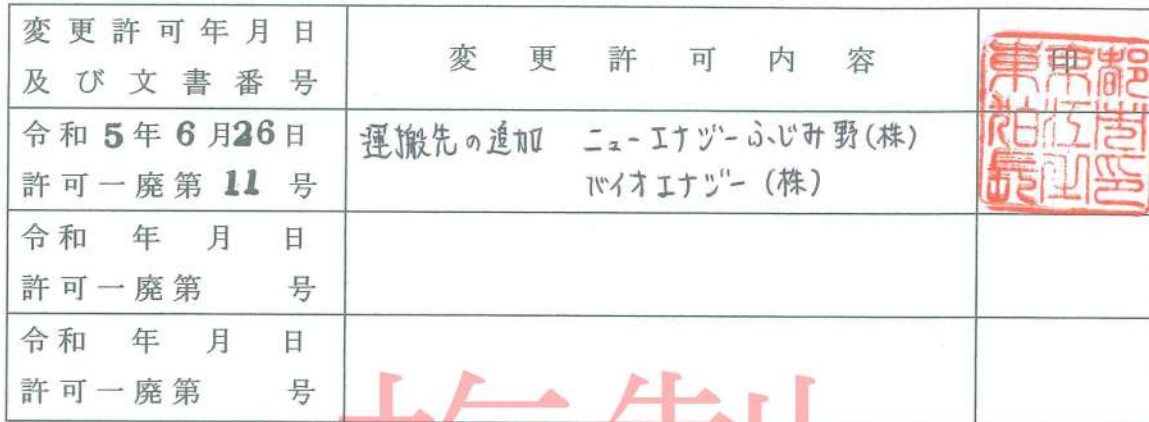 変更許可年月日
及び文書番号
変更許可内容
印
令和5年6月26日
許可一廃第11号
運搬先の追加 ニューエナジーふじみ野(株)
バイオエナジー(株)
東京都狛江市長之印
令和 年 月 日
許可一廃第 号
令和 年 月 日
許可一廃第 号
複製